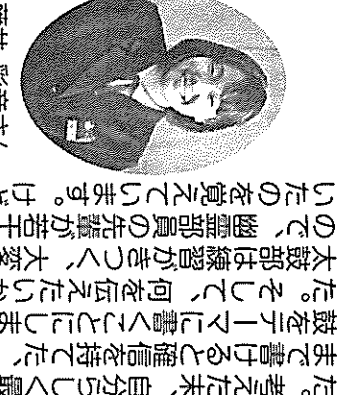 た。考えた末、自分らしく最
まで書けると確信を持てた、
鼓をテーマに書くことにしま
た。そして、何を伝えたいか
太鼓部は練習がきつく、大変
ので、幽霊部員の先輩が若干
いたのを覚えています。けど